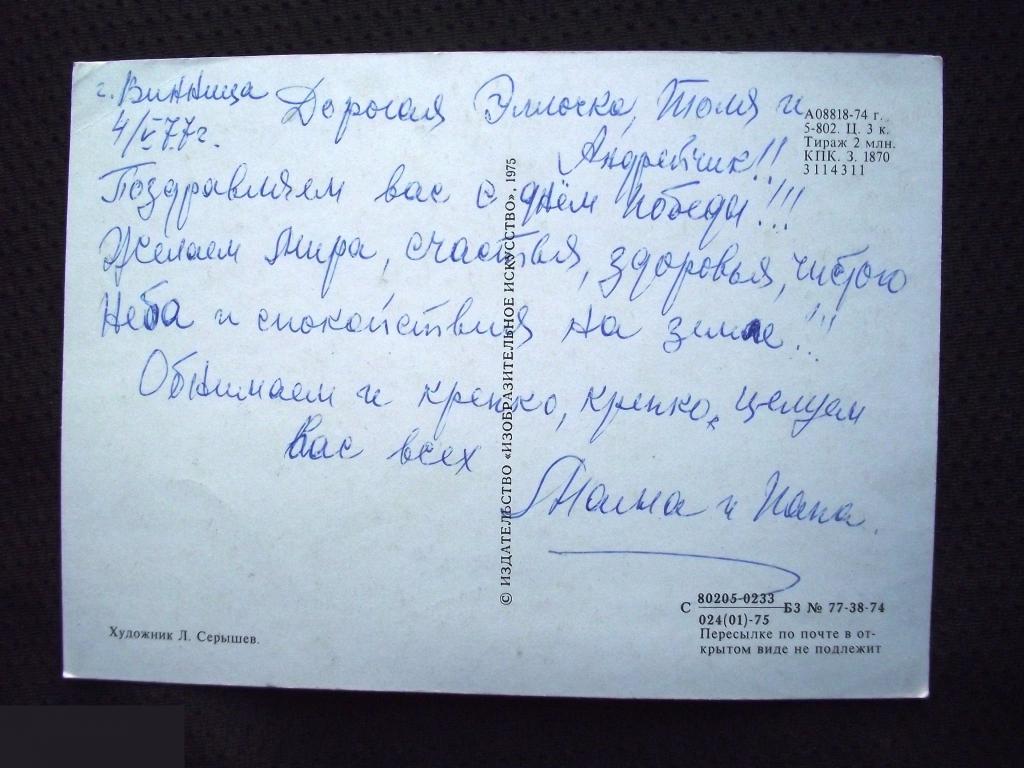 г. Винница
4/V 77г.
Дорогая Эллочка, Толя и
Андрейчик!!
Поздравляем вас с днём Победы!!!
Желаем мира, счастья, здоровья, чистого
неба и спокойствия на земле!!!
Обнимаем и крепко, крепко целуем
вас всех
Мама и Папа.
А08818-74 г.
5-802. Ц. 3 к.
Тираж 2 млн.
КПК. З. 1870
3114311
© ИЗДАТЕЛЬСТВО «ИЗОБРАЗИТЕЛЬНОЕ ИСКУССТВО», 1975
Художник Л. Серышев.
С 80205-0233 БЗ № 77-38-74
024(01)-75
Пересылке по почте в от-
крытом виде не подлежит